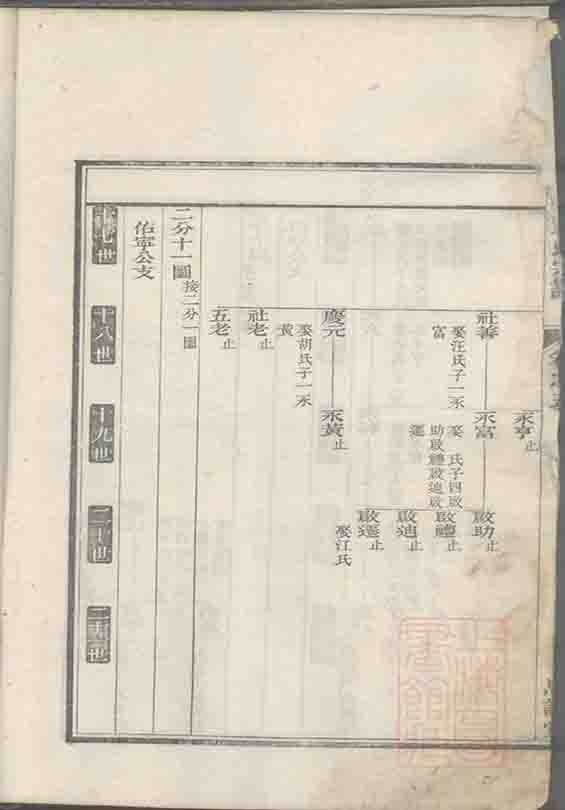 永亨止
社善
娶汪氏子一永
富
永富
娶 氏子四啟
助啟禮啟迪啟
還
啟助止
啟禮止
啟迪止
啟還止
娶江氏
慶元
娶胡氏子一永
黃
永黃止
社老止
五老止
二分十一圖接二分一圖
佑寧公支
十七世
十八世
十九世
二十世
二十一世